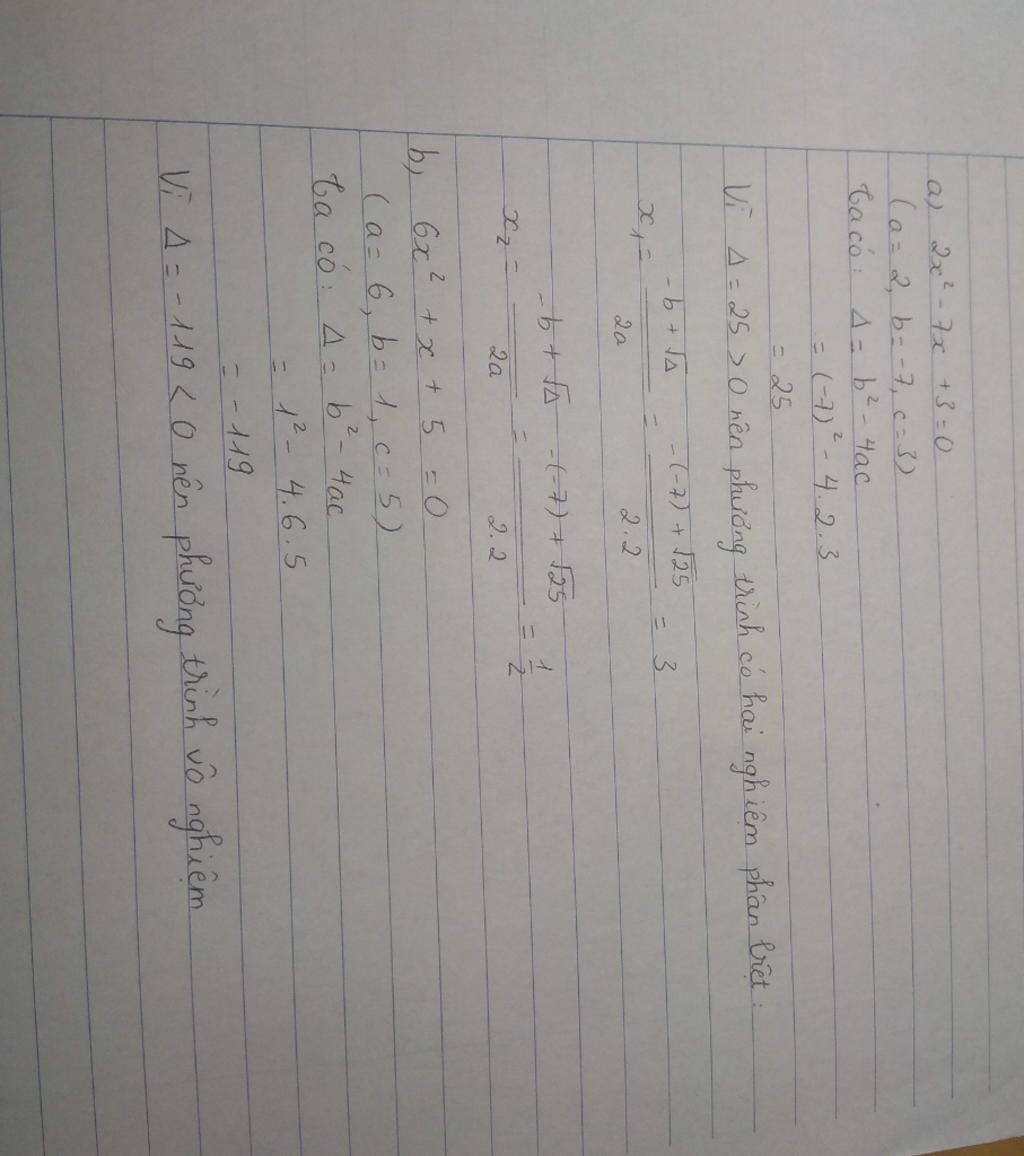 a) 2x² - 7x + 3 = 0
(a = 2, b = -7, c = 3)
Ta có: Δ = b² - 4ac
= (-7)² - 4.2.3
= 25
Vì Δ = 25 > 0 nên phương trình có hai nghiệm phân biệt:
x₁ = (-b + √Δ)/2a = (-(-7) + √25)/2.2 = 3
x₂ = (-b + √Δ)/2a = (-(-7) + √25)/2.2 = 1/2
b, 6x² + x + 5 = 0
(a = 6, b = 1, c = 5)
Ta có: Δ = b² - 4ac
= 1² - 4.6.5
= -119
Vì Δ = -119 < 0 nên phương trình vô nghiệm